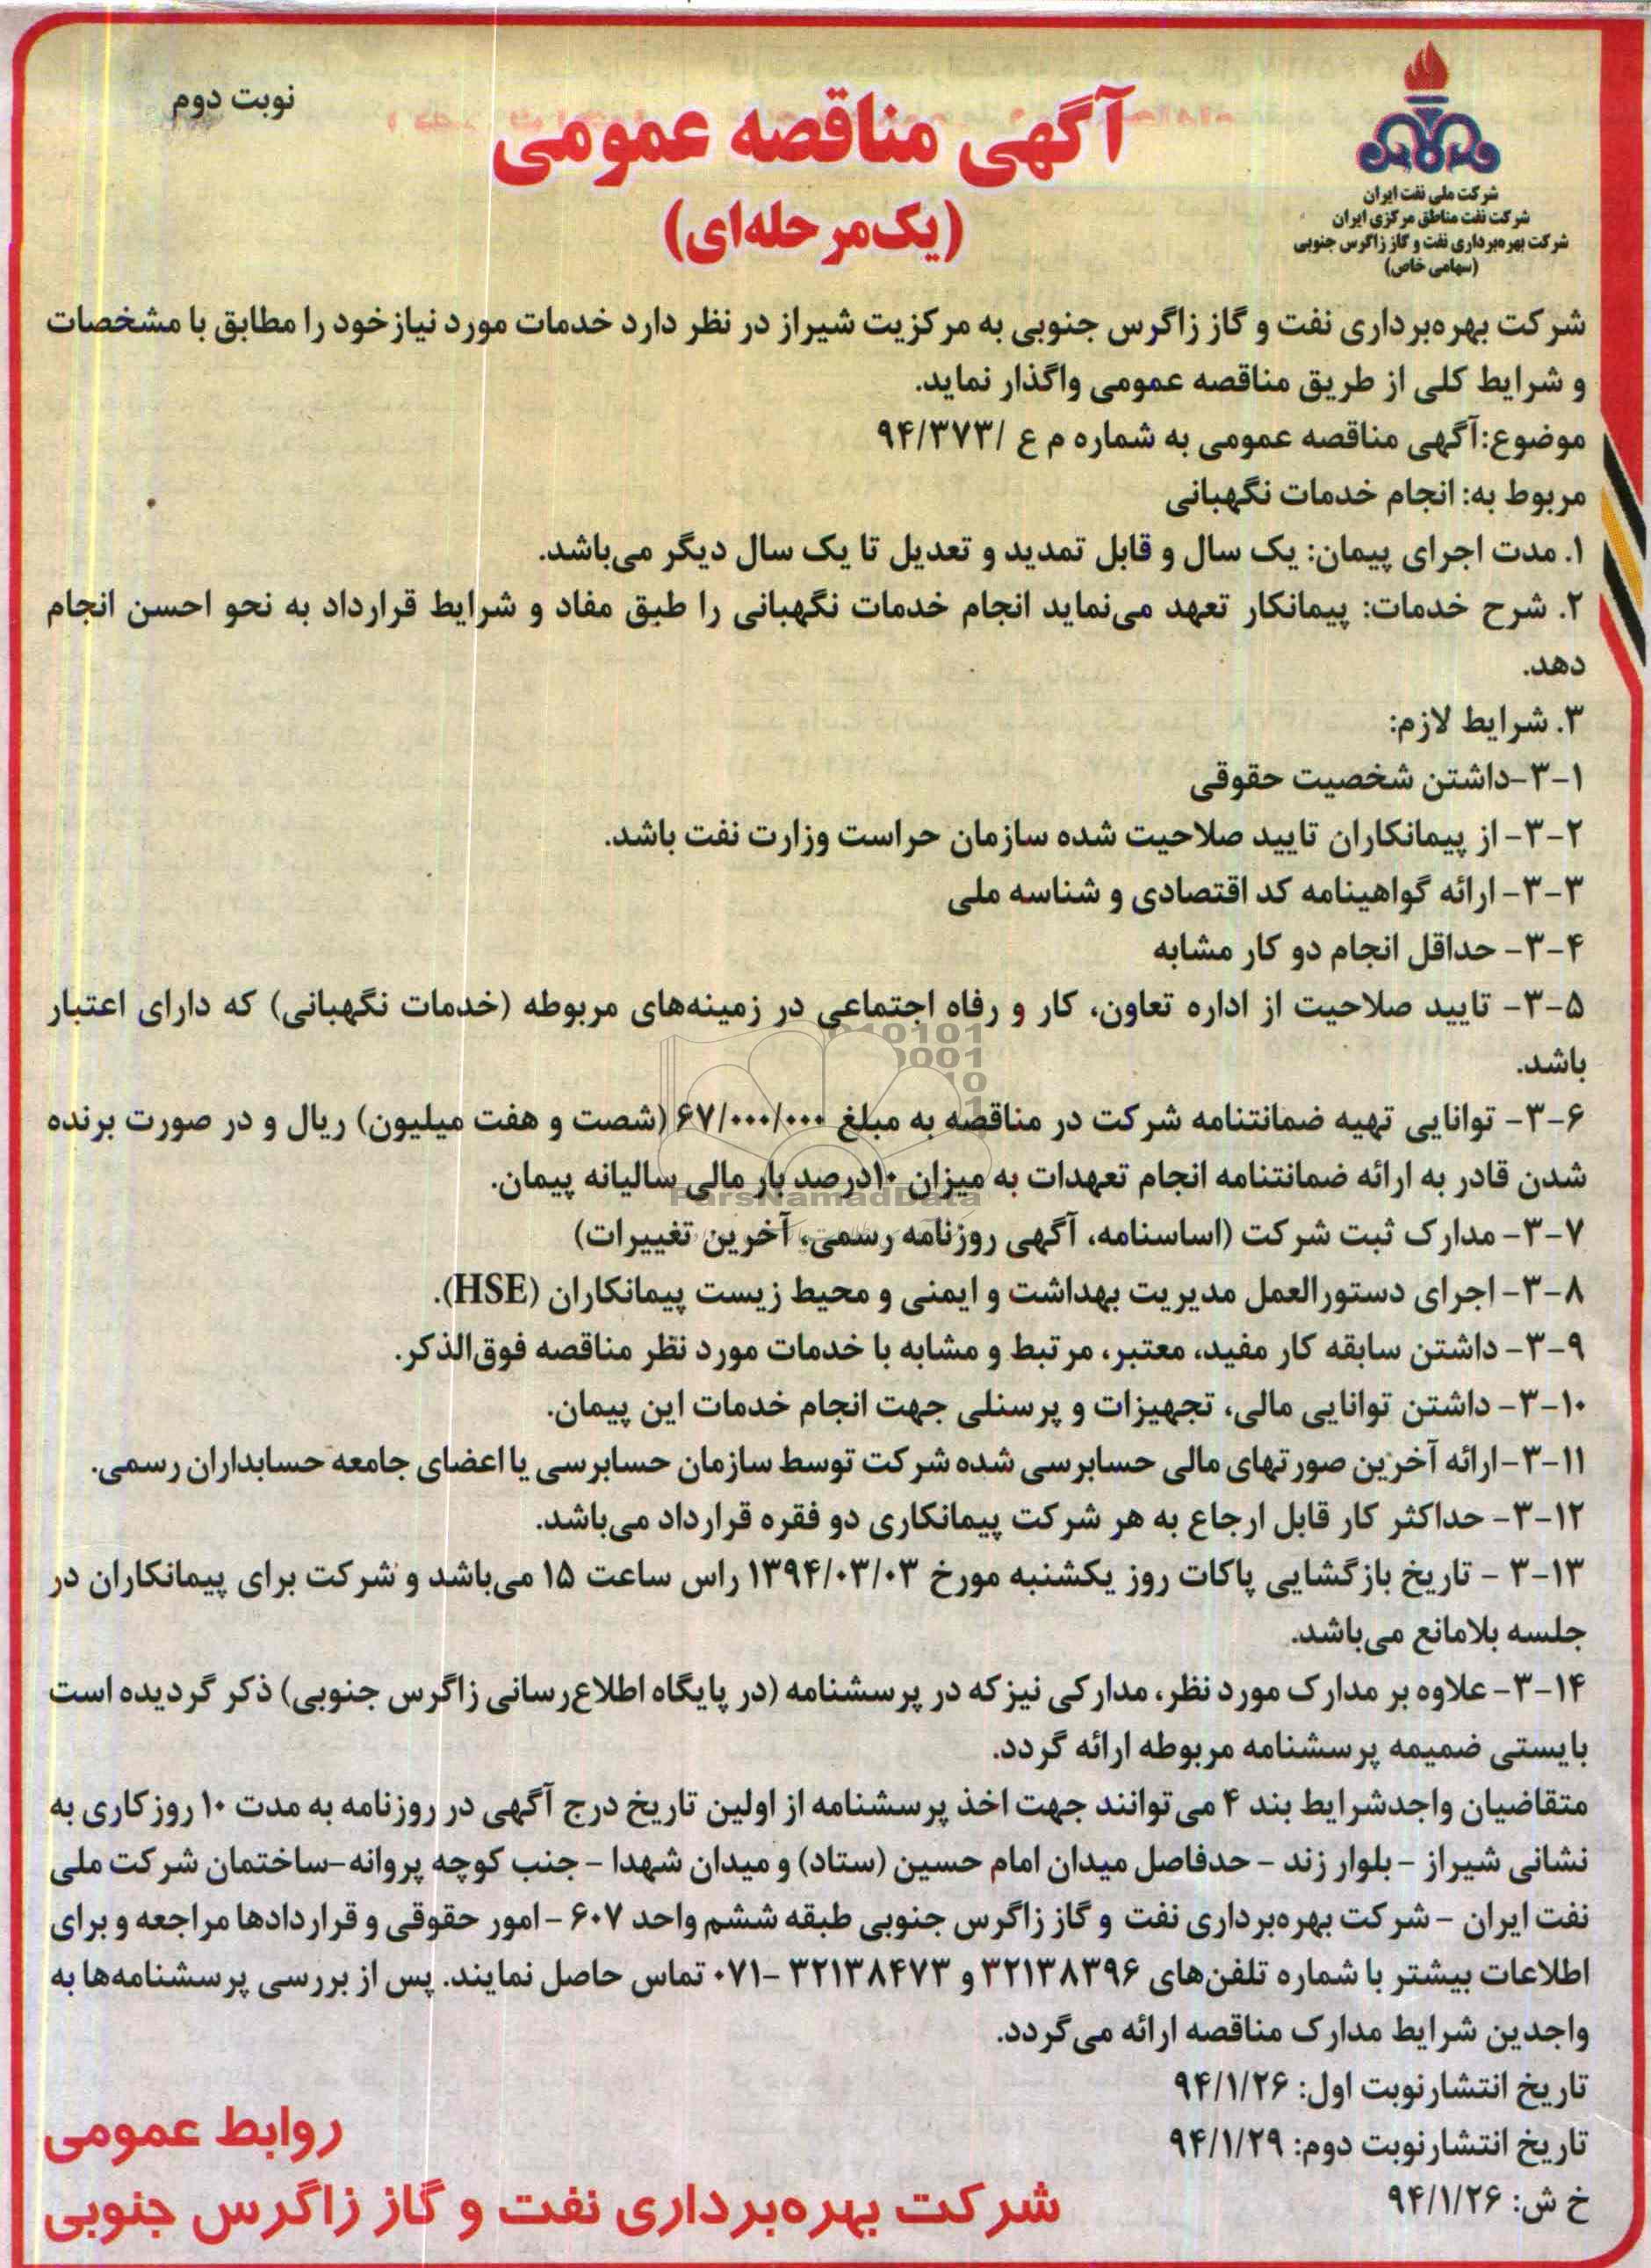 نوبت دوم
آگهی مناقصه عمومی
(یک‌مرحله‌ای)
شرکت ملی نفت ایران
شرکت نفت مناطق مرکزی ایران
شرکت بهره‌برداری نفت و گاز زاگرس جنوبی
(سهامی خاص)
شرکت بهره‌برداری نفت و گاز زاگرس جنوبی به مرکزیت شیراز در نظر دارد خدمات مورد نیاز خود را مطابق با مشخصات
و شرایط کلی از طریق مناقصه عمومی واگذار نماید.
موضوع:آگهی مناقصه عمومی به شماره م ع /۹۴/۳۷۳
مربوط به: انجام خدمات نگهبانی
۱. مدت اجرای پیمان: یک سال و قابل تمدید و تعدیل تا یک سال دیگر می‌باشد.
۲. شرح خدمات: پیمانکار تعهد می‌نماید انجام خدمات نگهبانی را طبق مفاد و شرایط قرارداد به نحو احسن انجام
دهد.
۳. شرایط لازم:
۳-۱-داشتن شخصیت حقوقی
۳-۲- از پیمانکاران تایید صلاحیت شده سازمان حراست وزارت نفت باشد.
۳-۳- ارائه گواهینامه کد اقتصادی و شناسه ملی
۳-۴- حداقل انجام دو کار مشابه
۳-۵- تایید صلاحیت از اداره تعاون، کار و رفاه اجتماعی در زمینه‌های مربوطه (خدمات نگهبانی) که دارای اعتبار
باشد.
۳-۶- توانایی تهیه ضمانتنامه شرکت در مناقصه به مبلغ ۶۷/۰۰۰/۰۰۰ (شصت و هفت میلیون) ریال و در صورت برنده
شدن قادر به ارائه ضمانتنامه انجام تعهدات به میزان ۱۰درصد بار مالی سالیانه پیمان.
ParsNamadData
۳-۷- مدارک ثبت شرکت (اساسنامه، آگهی روزنامه رسمی، آخرین تغییرات)
۳-۸- اجرای دستورالعمل مدیریت بهداشت و ایمنی و محیط زیست پیمانکاران (HSE).
۳-۹- داشتن سابقه کار مفید، معتبر، مرتبط و مشابه با خدمات مورد نظر مناقصه فوق‌الذکر.
۳-۱۰- داشتن توانایی مالی، تجهیزات و پرسنلی جهت انجام خدمات این پیمان.
۳-۱۱-ارائه آخرین صورتهای مالی حسابرسی شده شرکت توسط سازمان حسابرسی یا اعضای جامعه حسابداران رسمی.
۳-۱۲- حداکثر کار قابل ارجاع به هر شرکت پیمانکاری دو فقره قرارداد می‌باشد.
۳-۱۳ - تاریخ بازگشایی پاکات روز یکشنبه مورخ ۱۳۹۴/۰۳/۰۳ راس ساعت ۱۵ می‌باشد و شرکت برای پیمانکاران در
جلسه بلامانع می‌باشد.
۳-۱۴- علاوه بر مدارک مورد نظر، مدارکی نیز که در پرسشنامه (در پایگاه اطلاع‌رسانی زاگرس جنوبی) ذکر گردیده است
بایستی ضمیمه پرسشنامه مربوطه ارائه گردد.
متقاضیان واجدشرایط بند ۴ می‌توانند جهت اخذ پرسشنامه از اولین تاریخ درج آگهی در روزنامه به مدت ۱۰ روز کاری به
نشانی شیراز - بلوار زند - حدفاصل میدان امام حسین (ستاد) و میدان شهدا - جنب کوچه پروانه-ساختمان شرکت ملی
نفت ایران - شرکت بهره‌برداری نفت و گاز زاگرس جنوبی طبقه ششم واحد ۶۰۷ - امور حقوقی و قراردادها مراجعه و برای
اطلاعات بیشتر با شماره تلفن‌های ۳۲۱۳۸۳۹۶ و ۳۲۱۳۸۴۷۳ -۰۷۱ تماس حاصل نمایند. پس از بررسی پرسشنامه‌ها به
واجدین شرایط مدارک مناقصه ارائه می‌گردد.
تاریخ انتشارنوبت اول: ۹۴/۱/۲۶
تاریخ انتشارنوبت دوم: ۹۴/۱/۲۹
خ ش: ۹۴/۱/۲۶
روابط عمومی
شرکت بهره‌برداری نفت و گاز زاگرس جنوبی